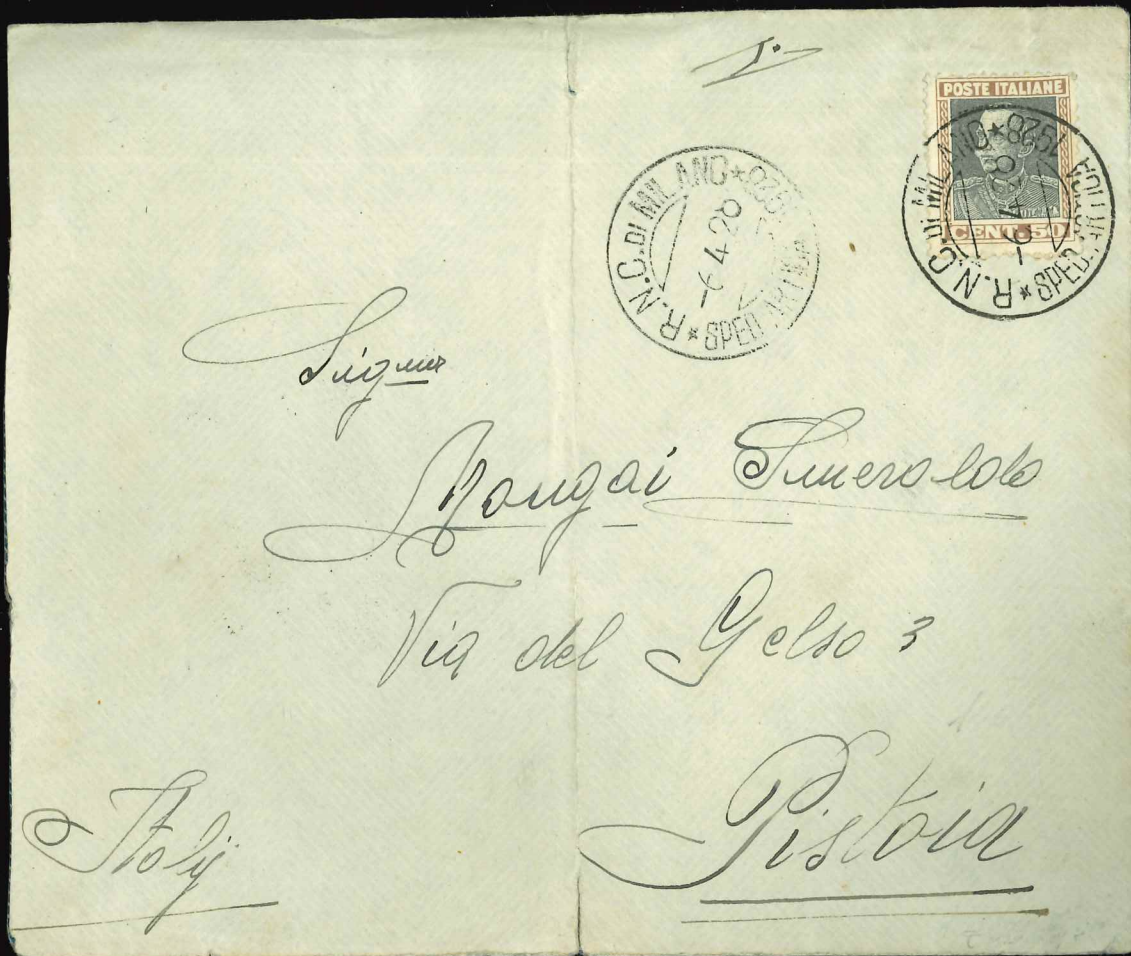 POSTE ITALIANE
CENT. 50
R.N.C. DI MILANO * 1928 SPED. ARTICA *
-6.4.28
R.N.C. DI MILANO * 1928 SPED. ARTICA *
-6.4.28
Signor
Mongai Smeraldo
Via del Gelso 3
Pistoia
Italy